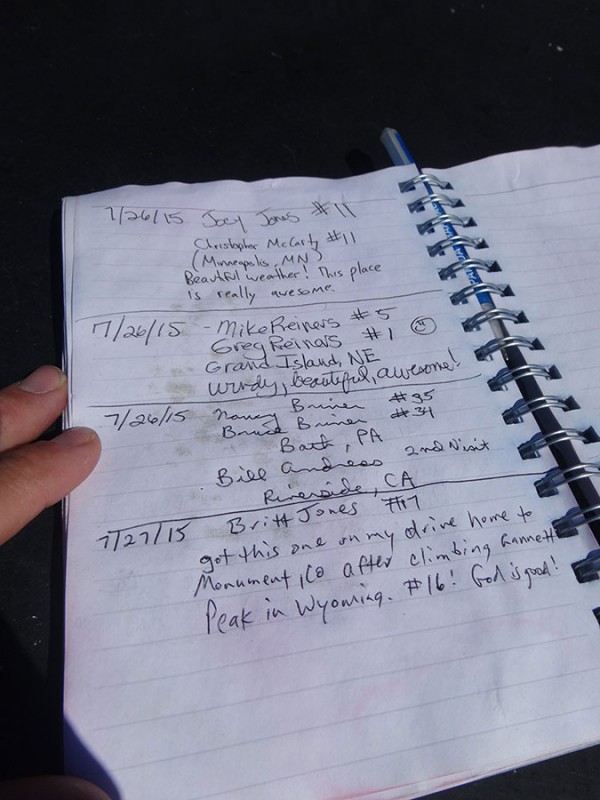 7/26/15 Joey Jones #11
Christopher McCarty #11
(Minneapolis, MN)
Beautiful weather! This place
is really awesome.
7/26/15 - Mike Reiners #5
Greg Reiners #1
Grand Island, NE
windy, beautiful, awesome!
7/26/15 Nancy Briner #35
Bruce Briner #34
Bath, PA
Bill Andreas 2nd Visit
Riverside, CA
7/27/15 Britt Jones #17
got this one on my drive home to
Monument, CO after climbing Gannett
Peak in Wyoming. #16! God is good!